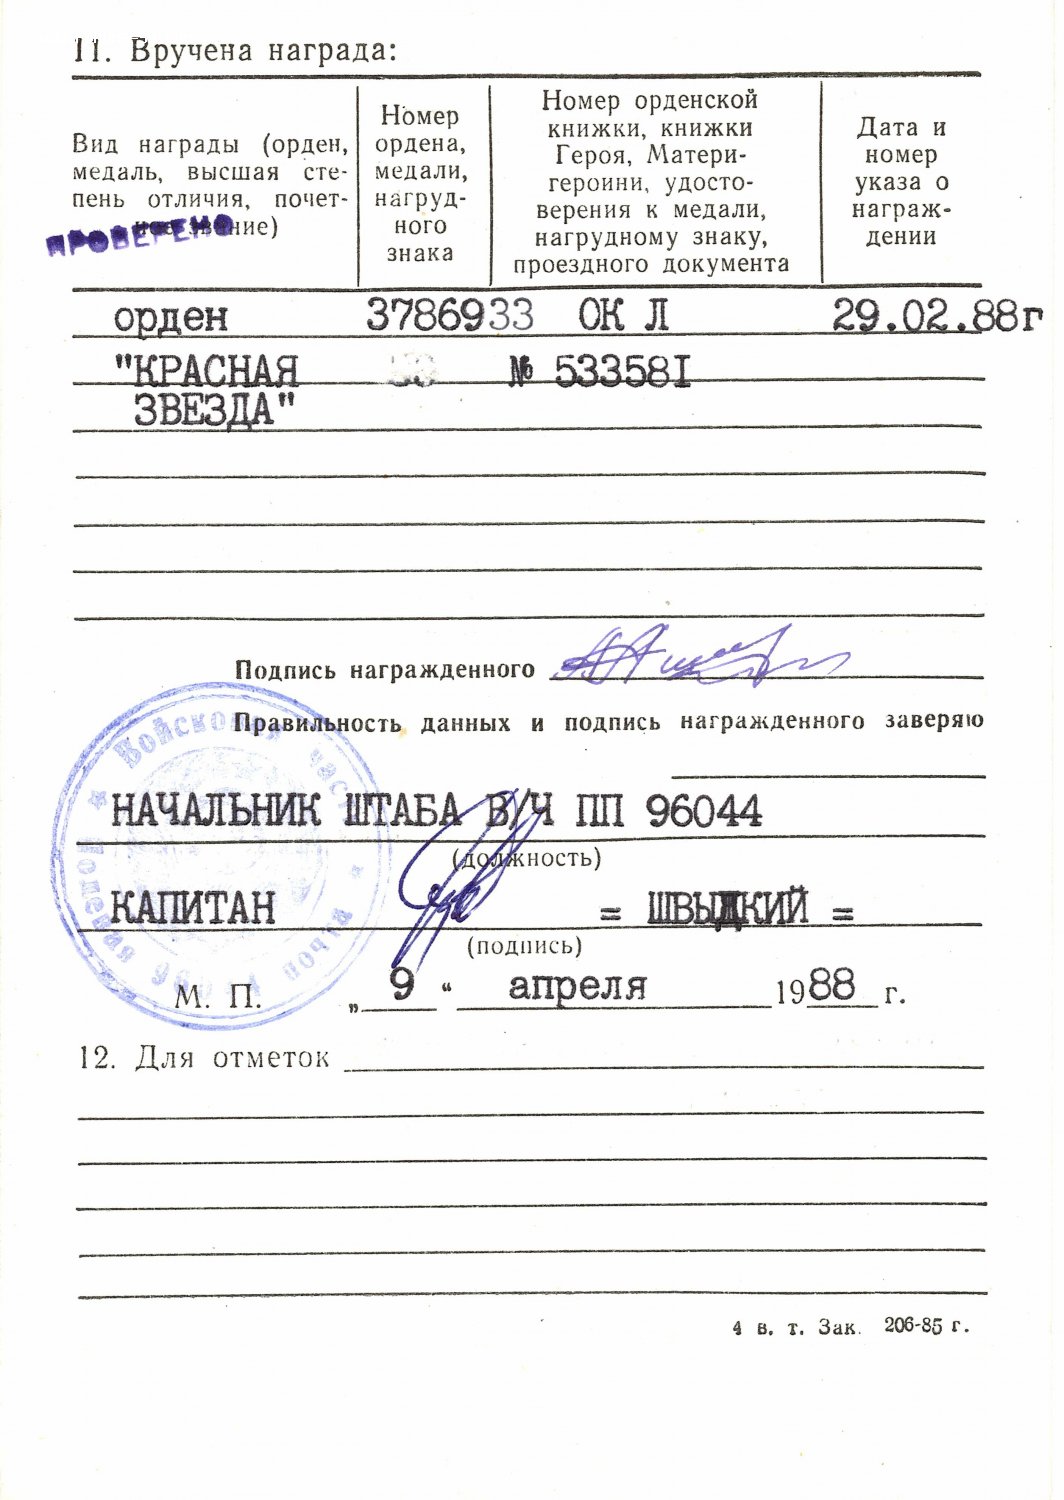 11. Вручена награда:
Вид награды (орден,
медаль, высшая сте-
пень отличия, почет-
ное звание)
ПРОВЕРЕНО
Номер
ордена,
медали,
нагруд-
ного
знака
Номер орденской
книжки, книжки
Героя, Матери-
героини, удосто-
верения к медали,
нагрудному знаку,
проездного документа
Дата и
номер
указа о
награж-
дении
орден 3786933 ОК Л 29.02.88г
"КРАСНАЯ № 533581
ЗВЕЗДА"
Подпись награжденного
Правильность данных и подпись награжденного заверяю
НАЧАЛЬНИК ШТАБА В/Ч ПП 96044
(должность)
КАПИТАН = ШВЫДКИЙ =
(подпись)
М. П. „ 9 “ апреля 1988 г.
Войсковая часть полевая почта
12. Для отметок
4 в. т. Зак. 206-85 г.